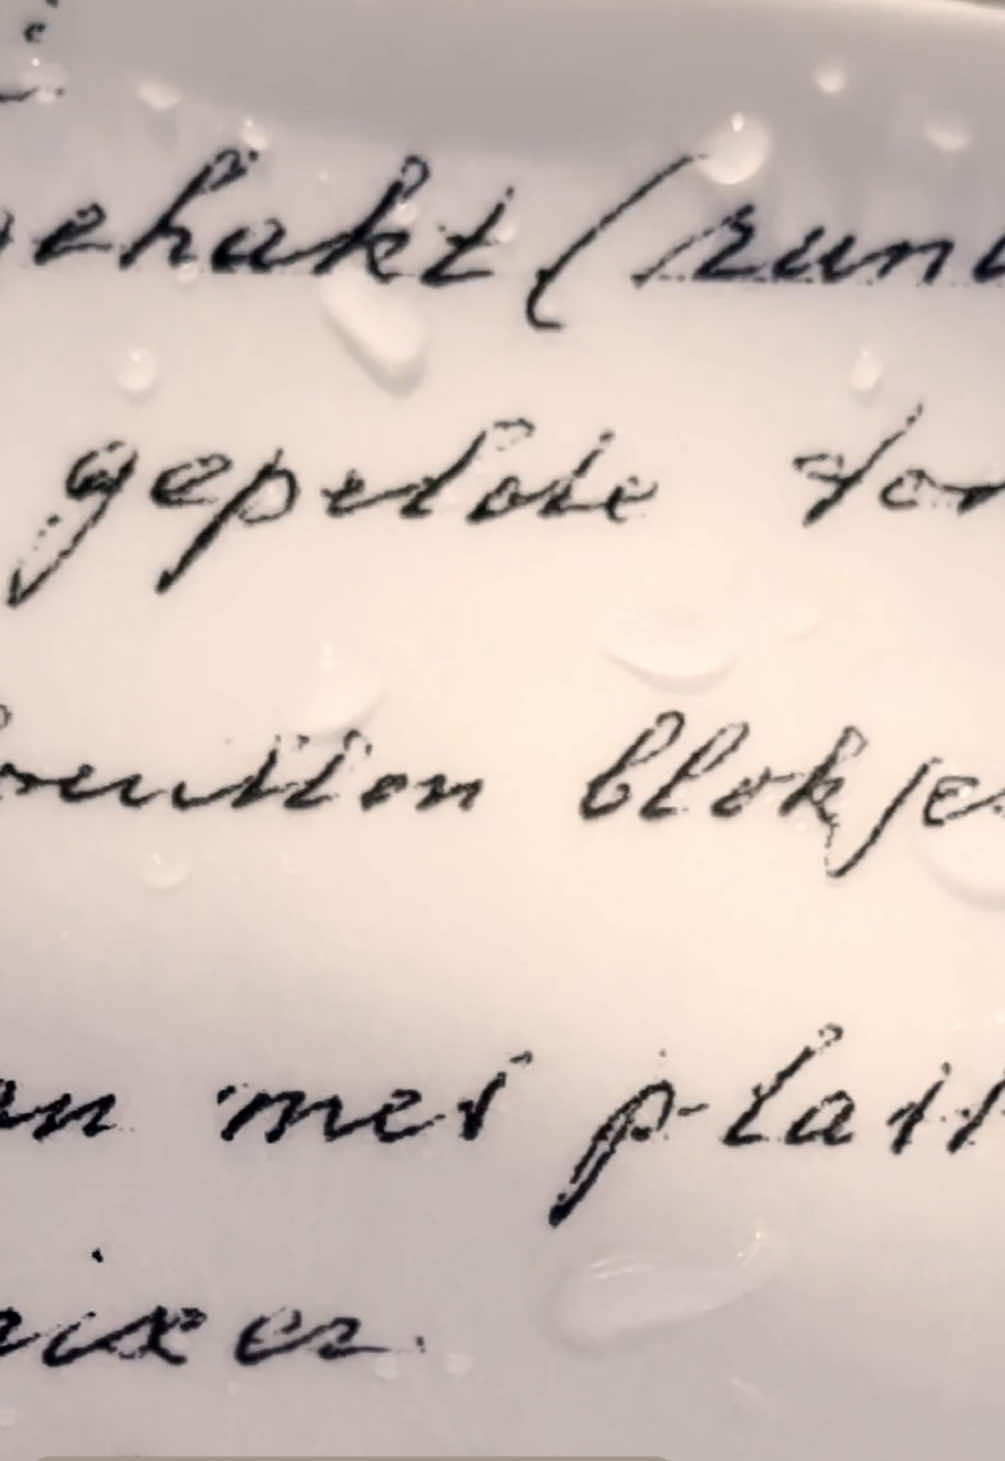 gehakt (rund
gepelde tom
bouillon blokje
an met plast
mixer.